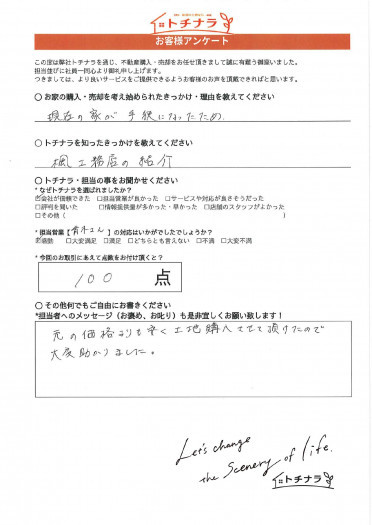 トチナラ
お客様アンケート
この度は弊社トチナラを通じ、不動産購入・売却をお任せ頂きまして誠に有難う御座いました。
担当並びに社員一同心より御礼申し上げます。
つきましては、より良いサービスをご提供できるようお客様のお声を頂戴できればと思います。
〇 お家の購入・売却を考え始められたきっかけ・理由を教えてください
現在の家が手狭になったため
〇 トチナラを知ったきっかけを教えてください
楓工務店の紹介
〇 トチナラ・担当の事をお聞かせください
* なぜトチナラを選ばれましたか？
会社が信頼できた □担当営業が良かった □サービスや対応が良さそうだった
□評判を聞いた □情報提供量が多かった・早かった □店舗のスタッフがよかった
□その他( )
* 担当営業【青木さん】の対応はいかがでしたでしょうか？
感動 □大変満足 □満足 □どちらとも言えない □不満 □大変不満
* 今回のお取引にあえて点数をお付け頂くと？
100 点
〇 その他何でもご自由にお書きください
*担当者へのメッセージ（お褒め、お叱り）も是非宜しくお願い致します！
元の価格よりも安く土地購入させて頂けたので
大変助かりました。
Let's change
the Scenery of life.
トチナラ